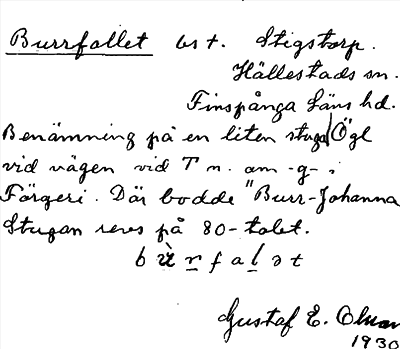 Burrfallet bst. Stigstorp.
Hällestads sn.
Finspånga läns hd.
Benämning på en liten stuga Ögl
vid vägen vid T n. om -g- i
Färgeri. Där bodde "Burr-Johanna
Stugan revs på 80-talet.
Gustaf E. Olsson
1930